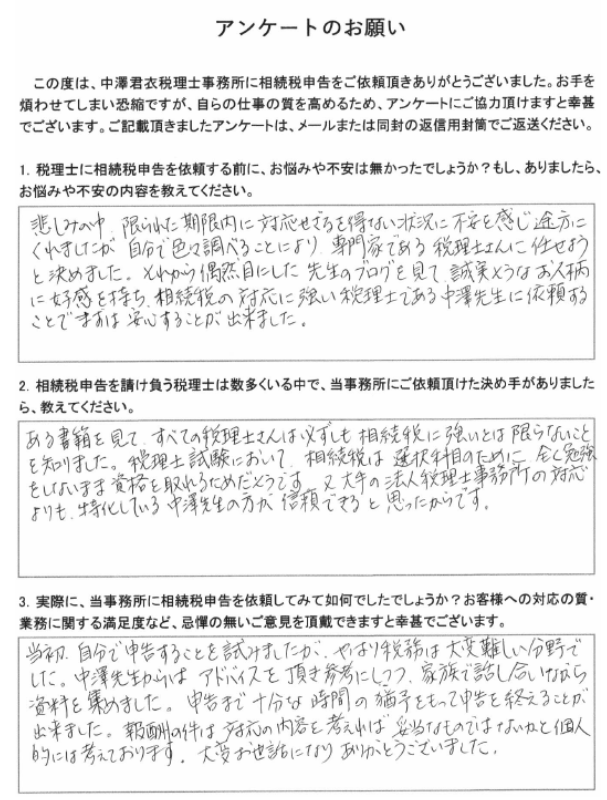 アンケートのお願い
この度は、中澤君衣税理士事務所に相続税申告をご依頼頂きありがとうございました。お手を
煩わせてしまい恐縮ですが、自らの仕事の質を高めるため、アンケートにご協力頂けますと幸甚
でございます。ご記載頂きましたアンケートは、メールまたは同封の返信用封筒でご返送ください。
1. 税理士に相続税申告を依頼する前に、お悩みや不安は無かったでしょうか？もし、ありましたら、
お悩みや不安の内容を教えてください。
悲しみの中、限られた期限内に対応せざるを得ない状況に不安を感じ途方に
くれましたが、自分で色々調べることにより、専門家である税理士さんに任せよう
と決めました。それから偶然目にした先生のブログを見て、誠実そうなお人柄
に好感を持ち、相続税の対応に強い税理士である中澤先生に依頼する
ことでまずは安心することが出来ました。
2. 相続税申告を請け負う税理士は数多くいる中で、当事務所にご依頼頂けた決め手がありました
ら、教えてください。
ある書籍を見て、すべての税理士さんは必ずしも相続税に強いとは限らないこと
を知りました。税理士試験において、相続税は選択科目のために、全く勉強
をしないまま資格を取れるためだそうです。又大手の法人税理士事務所の対応
よりも、特化している中澤先生の方が信頼できると思ったからです。
3. 実際に、当事務所に相続税申告を依頼してみて如何でしたでしょうか？お客様への対応の質・
業務に関する満足度など、忌憚の無いご意見を頂戴できますと幸甚でございます。
当初、自分で申告することを試みましたが、やはり税務は大変難しい分野で
した。中澤先生からはアドバイスを頂き参考にしつつ、家族で話し合いながら
資料を集めました。申告まで十分な時間の猶予をもって申告を終えることが
出来ました。報酬の件は対応の内容を考えれば妥当なものではないかと個人
的には考えております。大変お世話になりありがとうございました。